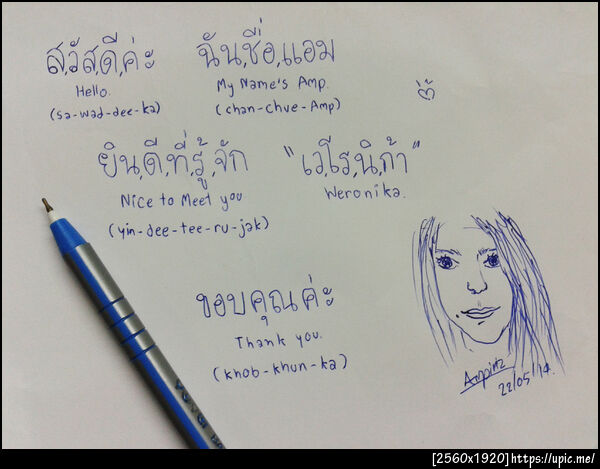 ส,วัส,ดี,ค่ะ ฉัน,ชื่อ,แอม
Hello. My Name's Amp.
(sa-wad-dee-ka) (chan-chue-Amp)
ยิน,ดี,ที่,รู้,จัก "เว,โร,นิ,ก้า"
Nice to Meet you Weronika.
(yin-dee-tee-ru-jak)
ขอบคุณค่ะ
Thank you.
(khob-khun-ka)
22/05/14.
[2560x1920]https://upic.me/